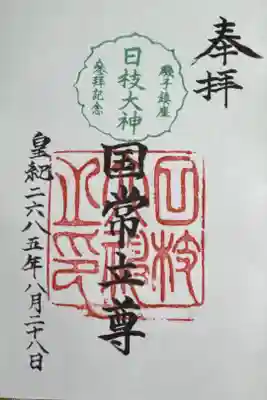 奉拝
磯子鎮座
日枝大神
参拝記念
国常立尊
日枝大神之印
皇紀二六八五年八月二十八日